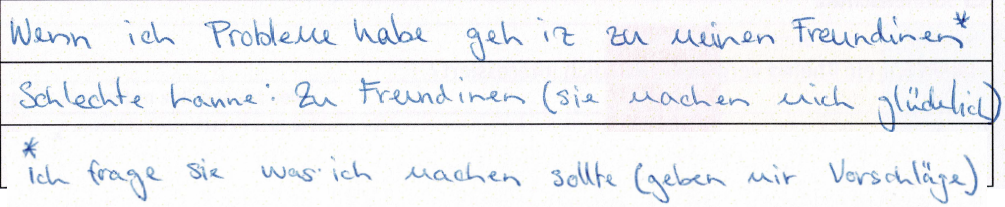 Wenn ich Probleme habe geh iz zu meinen Freundinen*
Schlechte Lanne: Zu Freundinen (sie machen mich glücklich)
* Ich frage sie was ich machen sollte (geben mir Vorschläge)